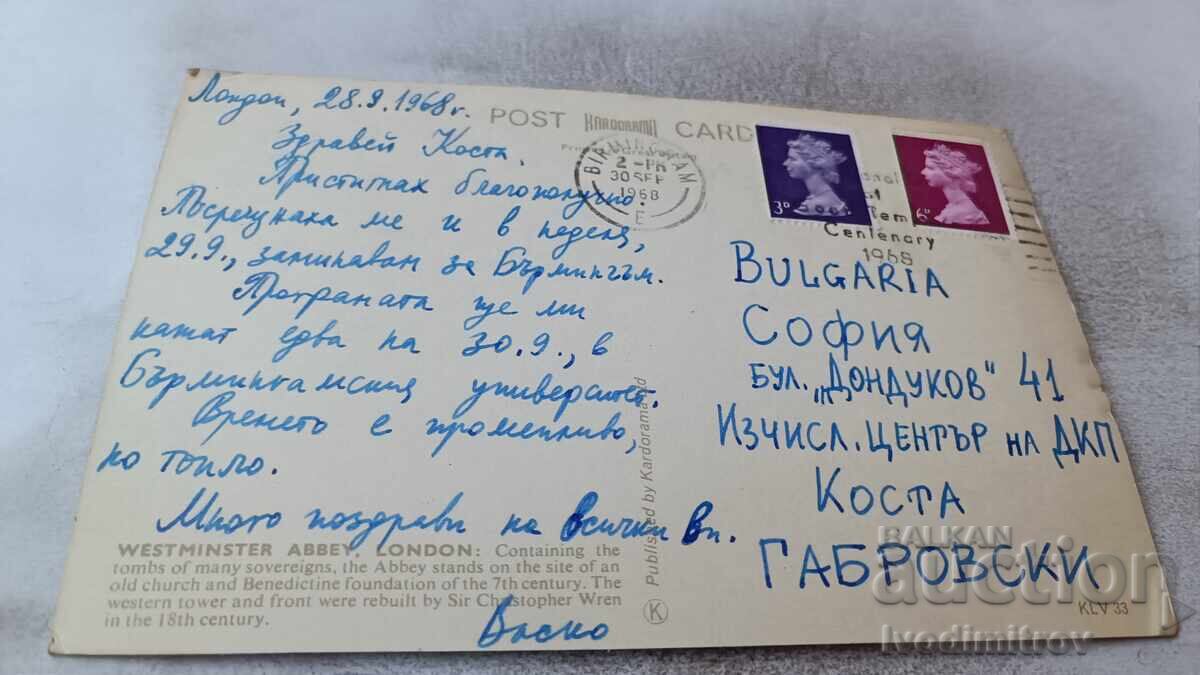 Лондон, 28.9.1968г.
Здравей Коста.
Пристигнах благополучно.
Посрещнаха ме и в неделя,
29.9., заминавам за Бърмингъм.
Програмата ще ми
кажат едва на 30.9., в
Бърмингамския университет.
Времето е променливо,
но топло.
Много поздрави на всички ви.
Васко
POST KARDORAMA CARD
BIRMINGHAM
2-PM
30 SEP
1968
E
3D
6D
Centenary
1968
BULGARIA
СОФИЯ
БУЛ. „ДОНДУКОВ" 41
ИЗЧИСЛ. ЦЕНТЪР НА ДКП
КОСТА
ГАБРОВСКИ
Published by Kardorama Ltd
K
WESTMINSTER ABBEY, LONDON: Containing the
tombs of many sovereigns, the Abbey stands on the site of an
old church and Benedictine foundation of the 7th century. The
western tower and front were rebuilt by Sir Christopher Wren
in the 18th century.
KLV 33
BALKAN
auction
Ivodimitrov